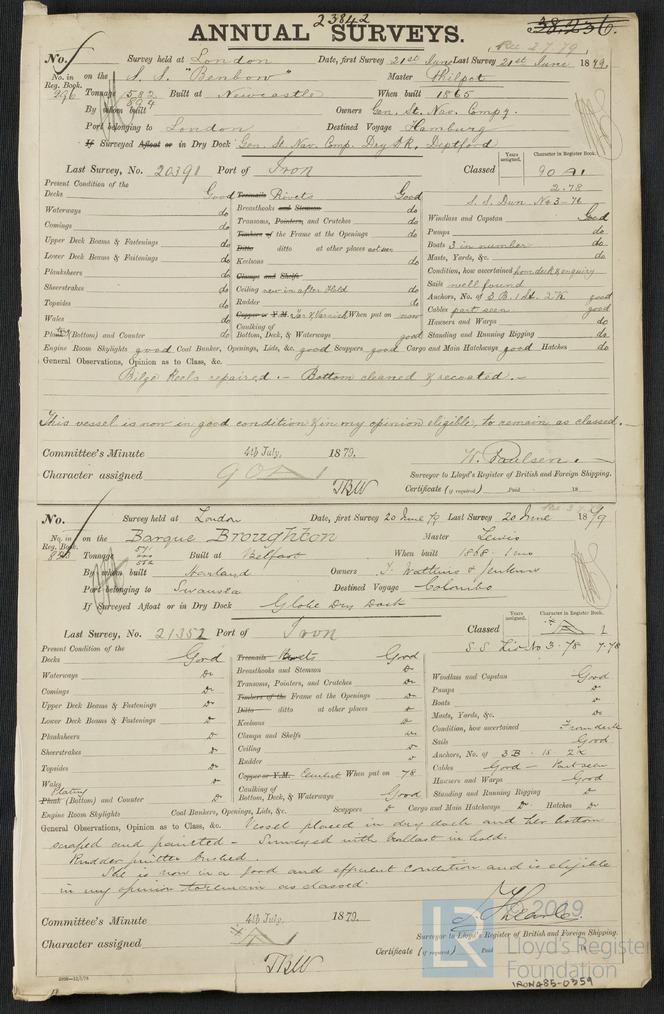 23842
ANNUAL SURVEYS.
38236.
Rec 2.7.79
No. Survey held at London Date, first Survey 21st June Last Survey 21st June 1879.
No. in Reg. Book. 296 on the S.S. "Benbow" Master Philpot
Tonnage 582 894 Built at Newcastle When built 1865
By whom built Owners Gen. St. Nav. Compy.
Port belonging to London Destined Voyage Hamburg
If Surveyed Afloat or in Dry Dock Gen. St. Nav. Comp. Dry Dk. Deptford
Years assigned. Character in Register Book.
Last Survey, No. 20391 Port of Iron Classed 90 A1
2.78
S.S. Dun. No 3-76
Present Condition of the
Decks Good Treenails Rivets Good
Waterways do Breasthooks and Stemson do Windlass and Capstan Good
Comings do Transoms, Pointers, and Crutches do Pumps do
Upper Deck Beams & Fastenings do Timbers of the Frame at the Openings do Boats 3 in number do
Lower Deck Beams & Fastenings do Ditto ditto at other places not seen Masts, Yards, &c. do
Planksheers do Keelsons do Condition, how ascertained from deck & enquiry
Sheerstrakes do Clamps and Shelfs Sails well found
Topsides do Ceiling new in after Hold do Anchors, No. of 3 B. 1 St. 2 K good
Wales do Rudder do Cables part seen good
Copper or Y.M. Tar & Varnish When put on now Hawsers and Warps do
Plank (Bottom) and Counter do Caulking of Bottom, Deck, & Waterways good Standing and Running Rigging do
Engine Room Skylights good Coal Bunker, Openings, Lids, &c. good Scuppers good Cargo and Main Hatchways good Hatches do
General Observations, Opinion as to Class, &c.
Bilge Keels repaired. — Bottom cleaned & recoated. —
This vessel is now in good condition & in my opinion eligible, to remain as classed. —
Committee's Minute 4th July, 1879.
W. Paulsen.
Character assigned 90 A1
Surveyor to Lloyd's Register of British and Foreign Shipping.
TBW
Certificate (if required) Paid 18
No. Survey held at London Date, first Survey 20 June 79 Last Survey 20 June 1879
No. in Reg. Book. on the Barque Broughton Master Lewis
Tonnage 571 562 Built at Belfast When built 1868
By whom built Harland Owners J. Watkins & Jenkins
Port belonging to Swansea Destined Voyage Colombo
If Surveyed Afloat or in Dry Dock Globe Dry Dock
Years assigned. Character in Register Book.
Last Survey, No. 21351 Port of Iron Classed A 1
S.S. No 3-78 7.78
Present Condition of the
Decks Good Treenails Rivets Good
Waterways Do Breasthooks and Stemson Do Windlass and Capstan Good
Comings Do Transoms, Pointers, and Crutches Do Pumps Do
Upper Deck Beams & Fastenings Do Timbers of the Frame at the Openings Do Boats Do
Lower Deck Beams & Fastenings Do Ditto ditto at other places Do Masts, Yards, &c. Do
Planksheers Do Keelsons Do Condition, how ascertained From deck
Sheerstrakes Do Clamps and Shelfs Do Sails Good
Topsides Do Ceiling Do Anchors, No. of 3 B 1 S 2 K
Wales Do Rudder Do Cables Good — Part seen
Copper or Y.M. Cement When put on 78 Hawsers and Warps Good
Plating Plank (Bottom) and Counter Do Caulking of Bottom, Deck, & Waterways Good Standing and Running Rigging Do
Engine Room Skylights Coal Bunkers, Openings, Lids, &c. Scuppers Do Cargo and Main Hatchways Do Hatches Do
General Observations, Opinion as to Class, &c. Vessel placed in dry dock and her bottom
scraped and painted — Surveyed with ballast in hold.
Rudder pintles bushed.
She is now in a good and efficient condition and is eligible
in my opinion to remain as classed.
Committee's Minute 4th July, 1879.
Character assigned
Surveyor to Lloyd's Register of British and Foreign Shipping.
TBW
Certificate (if required) Paid
© 2019
LR
Lloyd's Register
Foundation
IRON485-0359